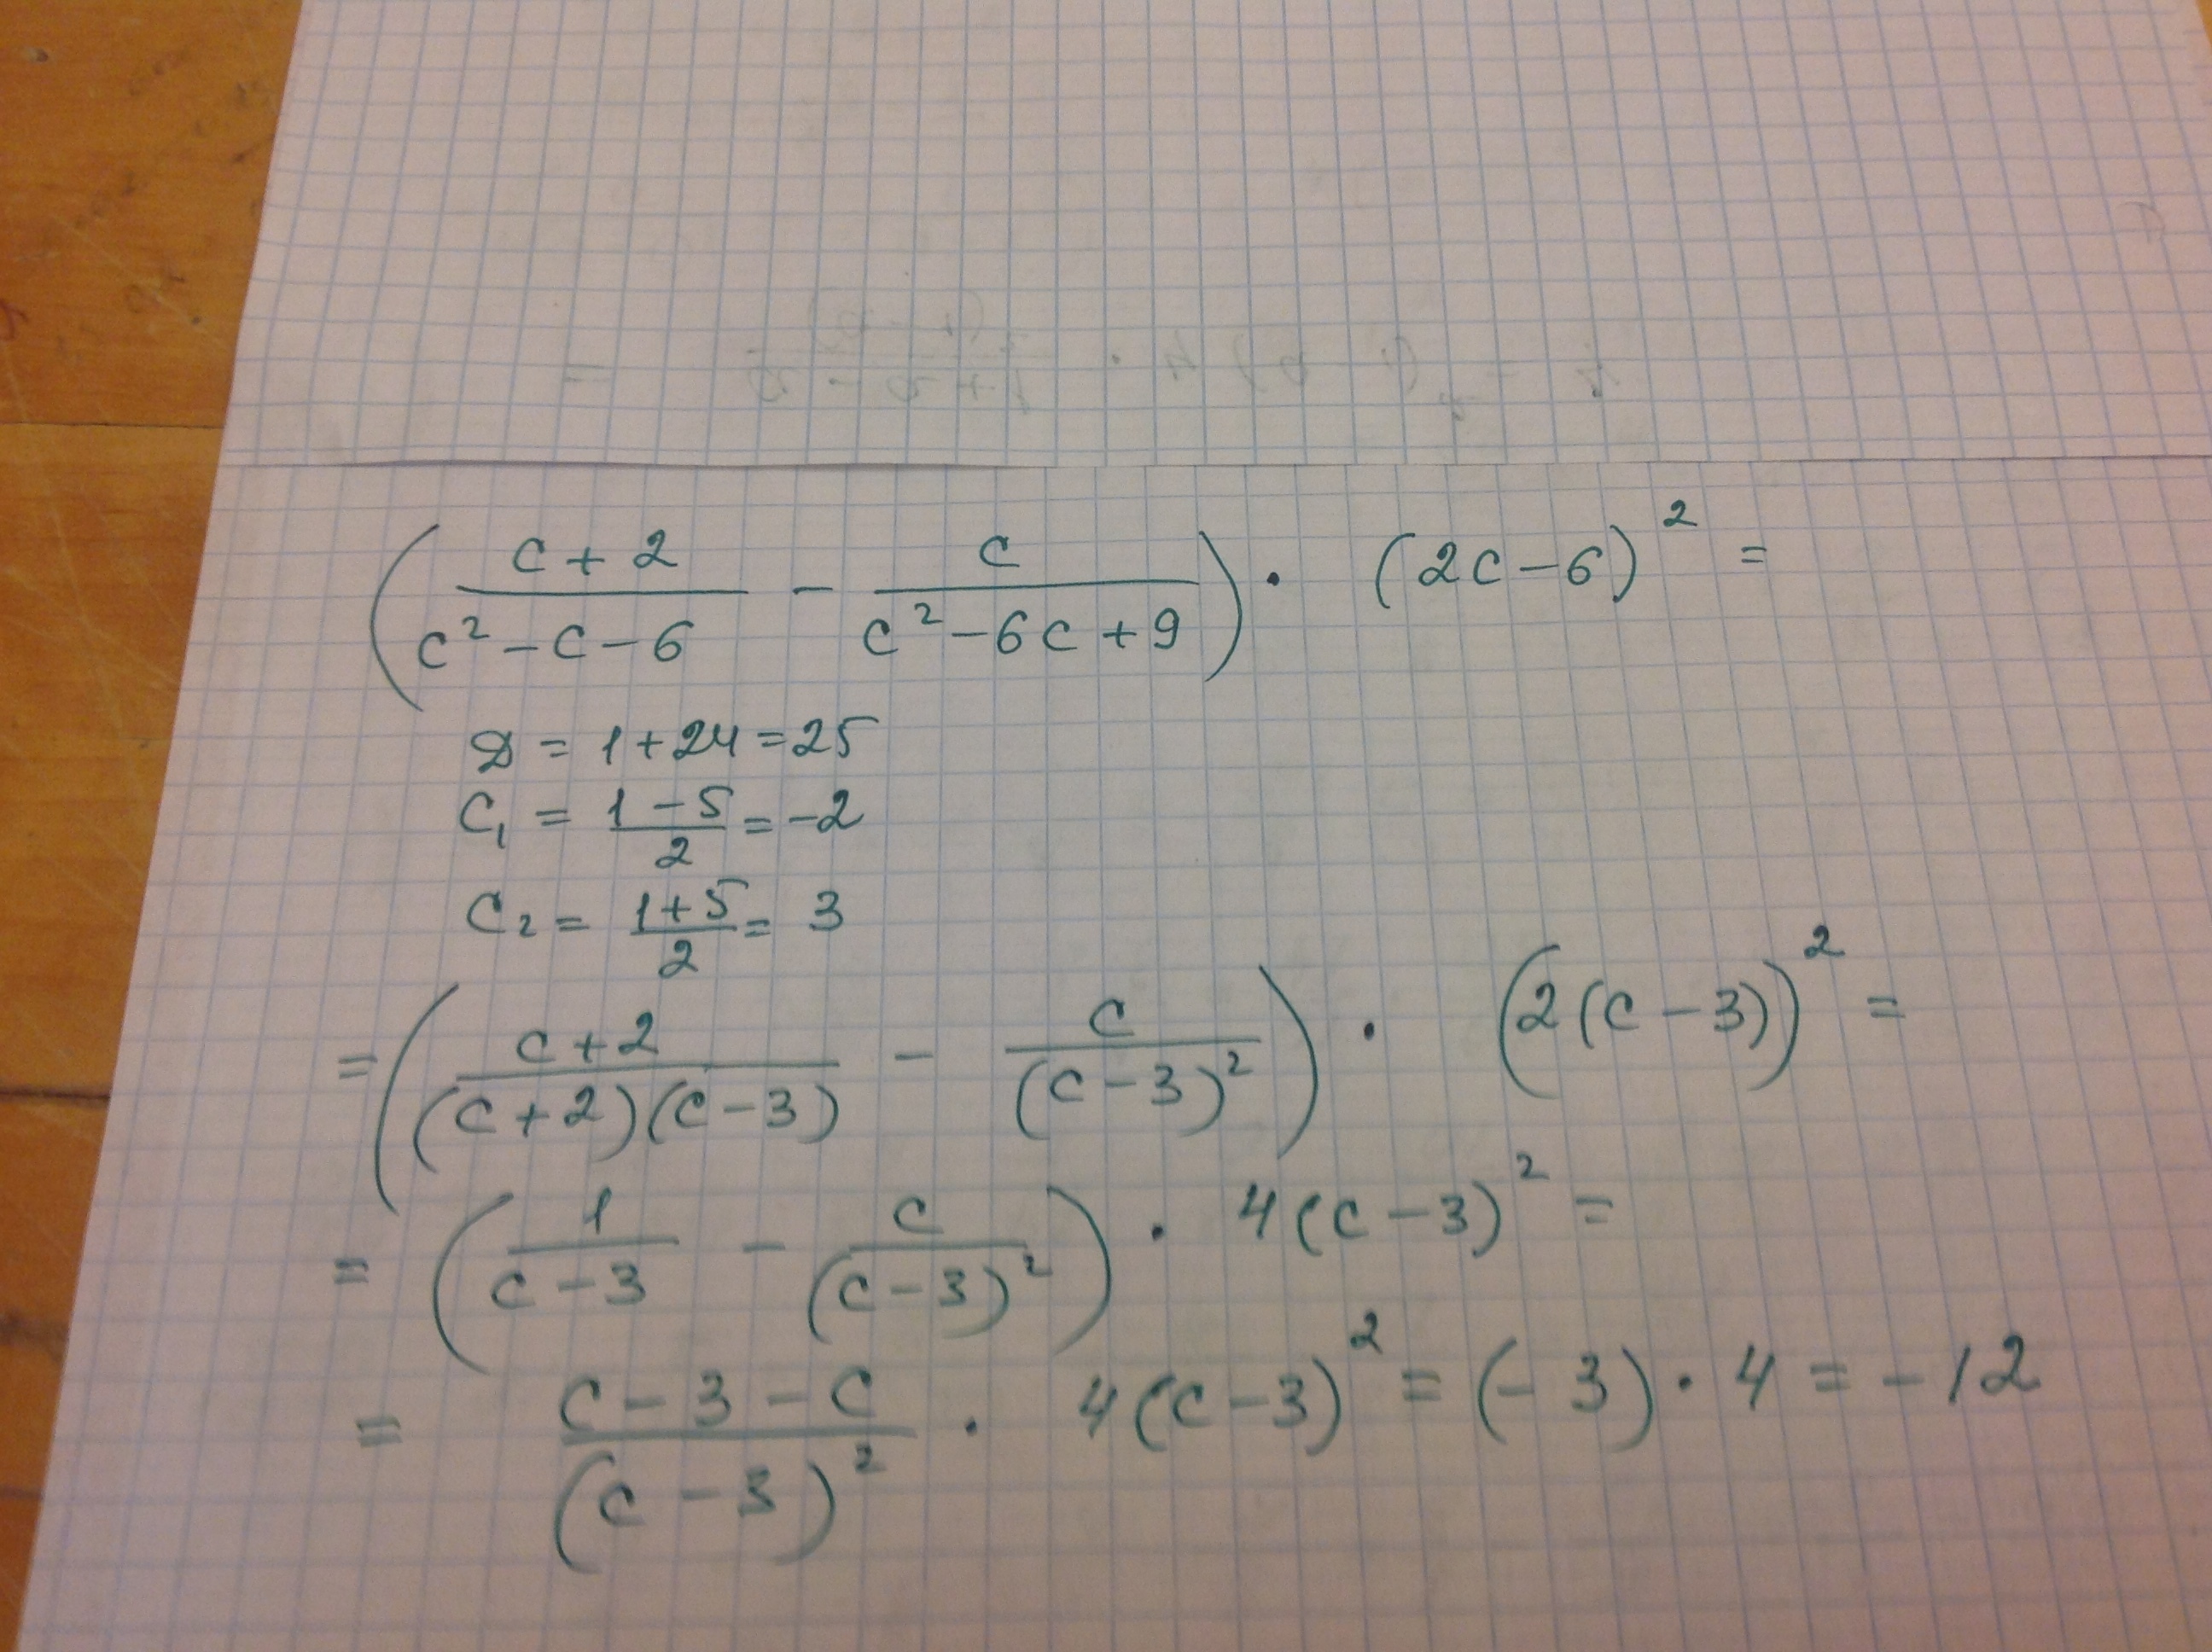 (c+2/(c²-c-6) - c/(c²-6c+9)) · (2c-6)² =
D = 1+24=25
C₁ = (1-5)/2 = -2
C₂ = (1+5)/2 = 3
= ((c+2)/((c+2)(c-3)) - c/(c-3)²) · (2(c-3))² =
= (1/(c-3) - c/(c-3)²) · 4(c-3)² =
= (c-3-c)/(c-3)² · 4(c-3)² = (-3) · 4 = -12